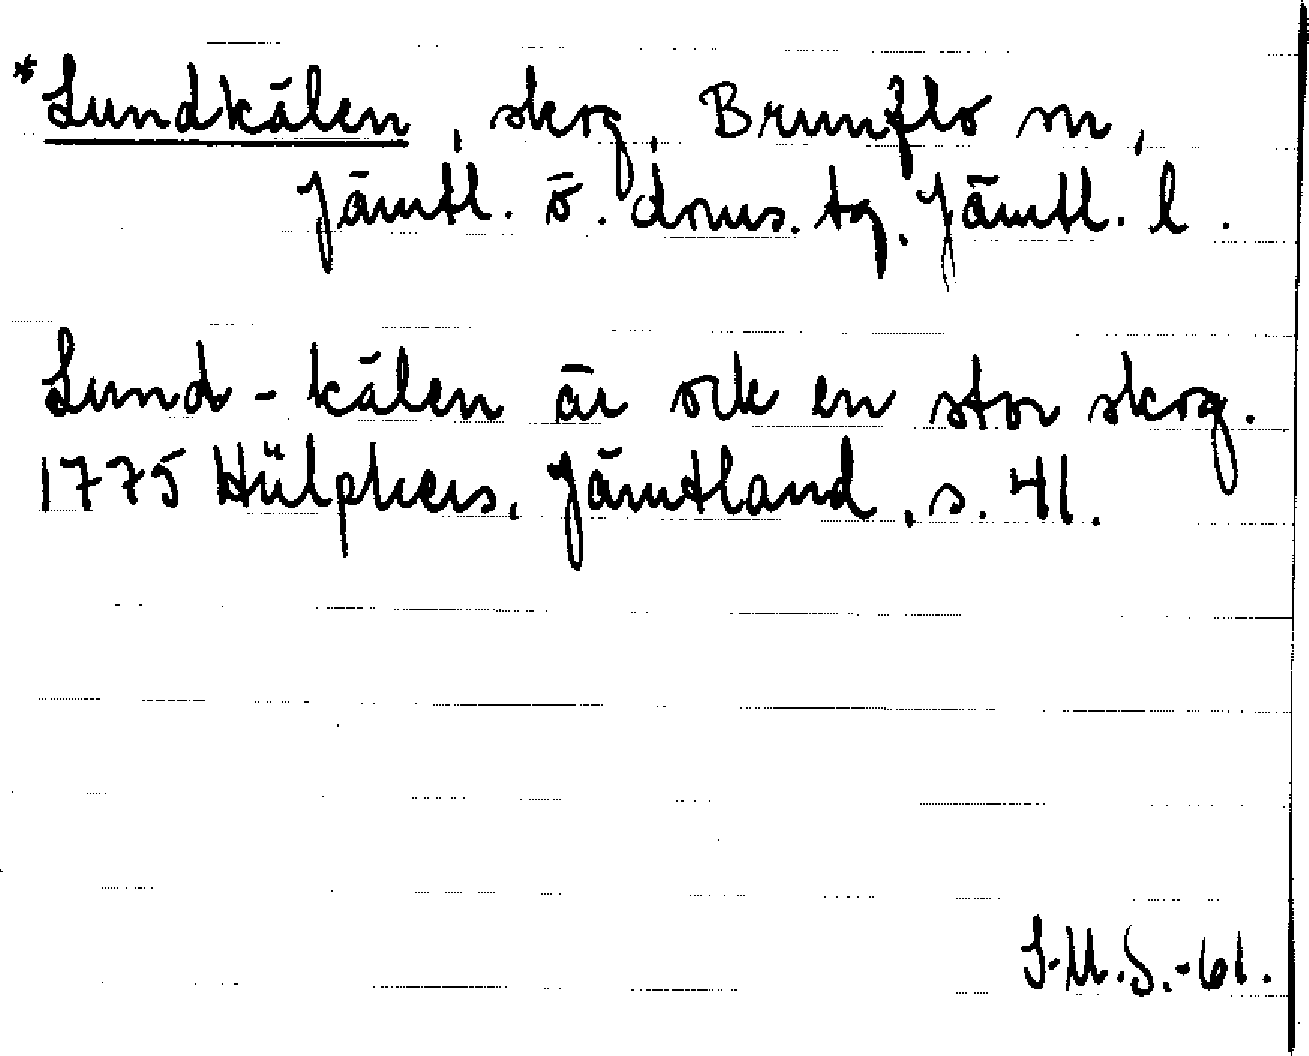 *Lundkälen, skog, Brunflo sn,
Jämtl. ö. doms. tg, Jämtl. l.
Lund-kälen är ock en stor skog.
1775 Hülphers, Jämtland, s. 41.
I-M.S.-61.